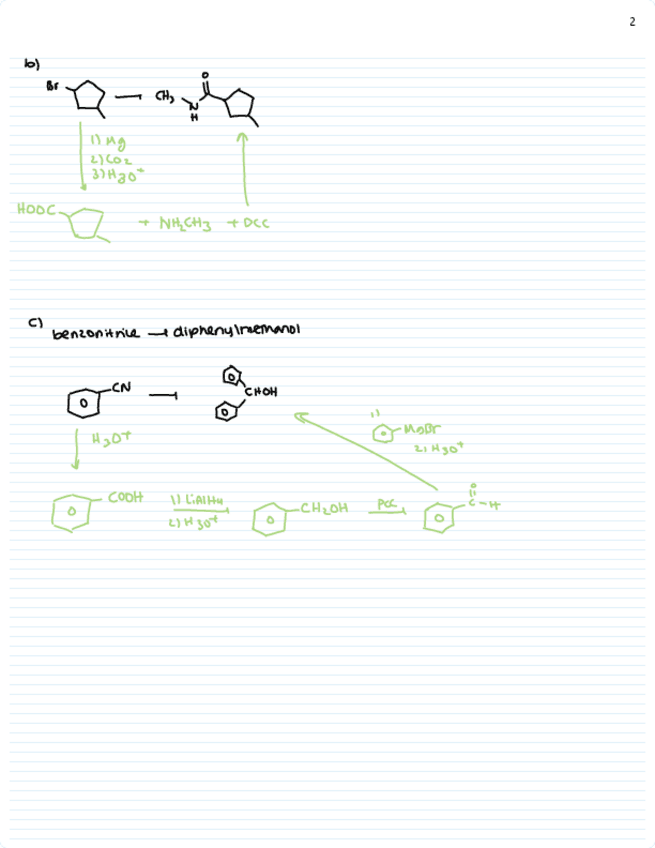 2
b)
Br
CH3
O
N
H
1) Mg
2) CO2
3) H3O+
HOOC
+ NH2CH3 + DCC
c)
benzonitrile → diphenylmemanol
CN → CHOH
H3O+
1)
MgBr
2) H3O+
COOH
1) LiAlH4
2) H3O+
CH2OH
PCC
O
C-H